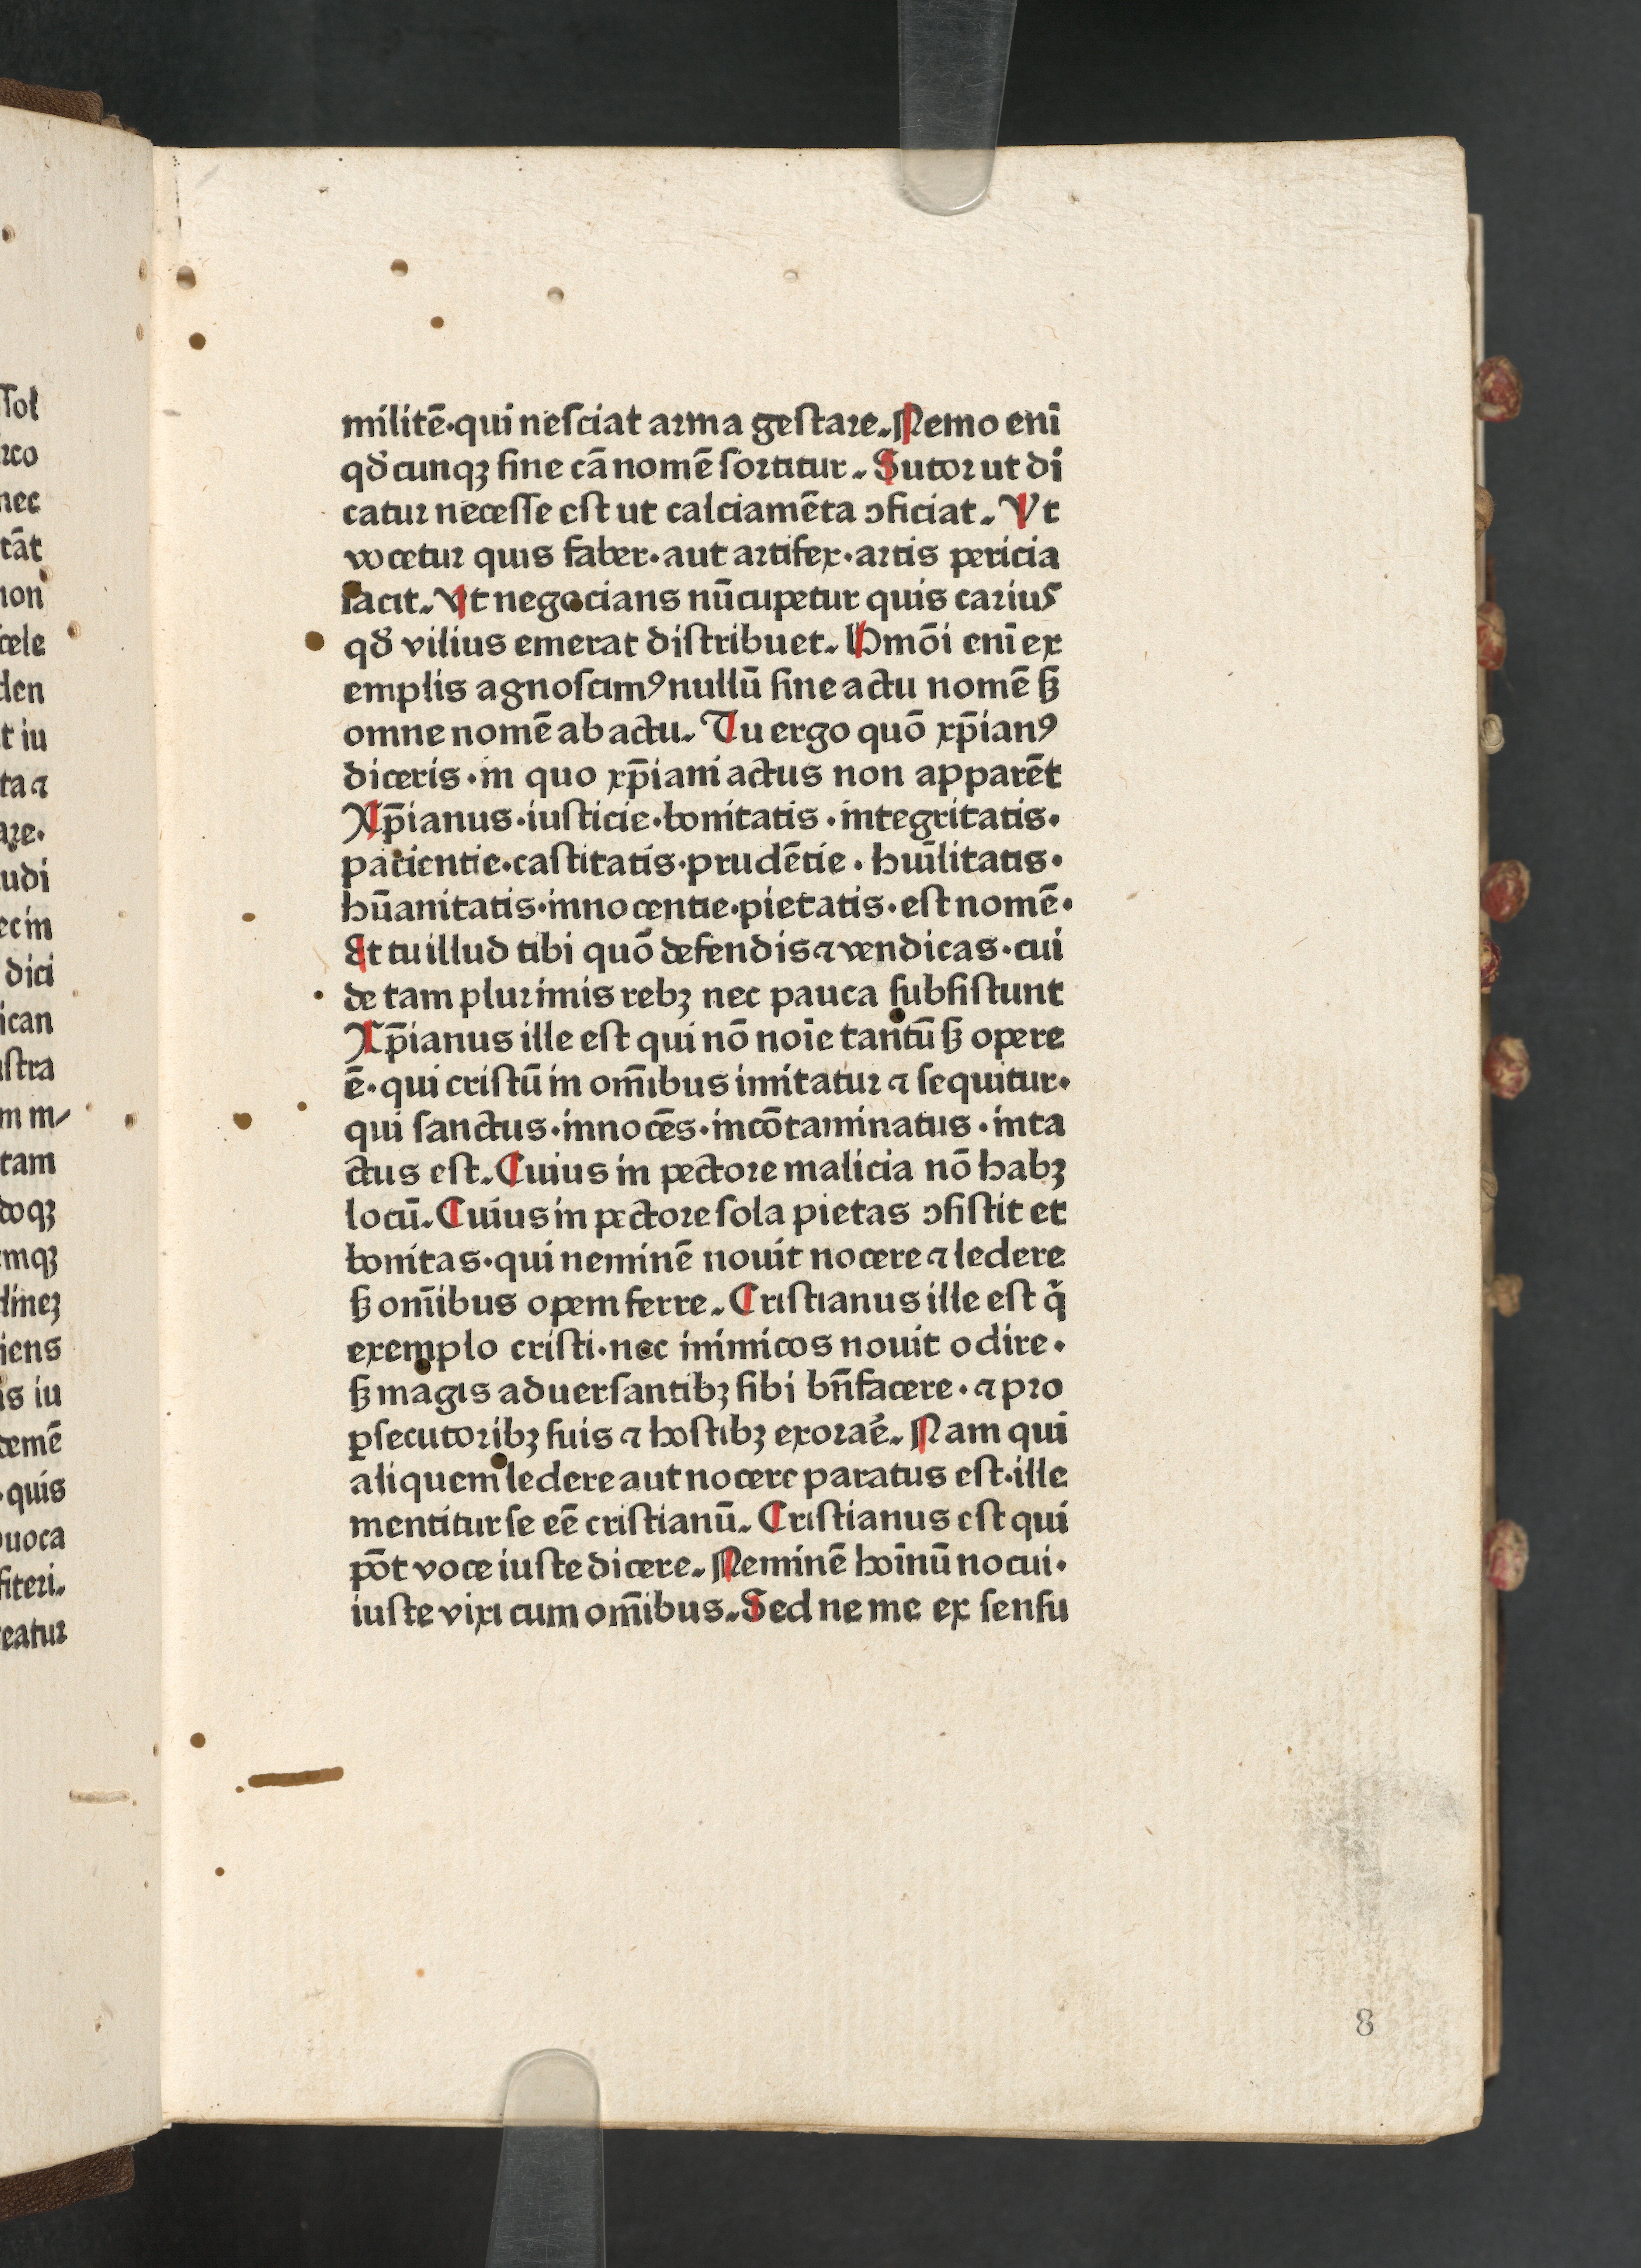 militē·qui nesciat arma gestare. Nemo enī
qđcunqꝫ sine cā nomē sortitur. Sutor ut di
catur necesse est ut calciamēta ꝯficiat. Vt
vocetur quis faber·aut artifex·artis pericia
facit. Vt negocians nūcupetur quis carius
qđ vilius emerat distribuet. Hmōi enī ex
emplis agnoscimꝰ nullū sine actu nomē sꝫ
omne nomē ab actu. Tu ergo quō xp̄ianꝰ
diceris·in quo xp̄iani actus non apparēt
Xp̄ianus·iusticie·bonitatis·integritatis·
pacientie·castitatis·prudētie·huīlitatis·
hūanitatis·innocentie·pietatis·est nomē·
Et tu illud tibi quō defendis ⁊ vendicas·cui
de tam plurimis rebꝫ nec pauca subsistunt
Xp̄ianus ille est qui nō noīe tantū sꝫ opere
ē·qui cristū in om̄ibus imitatur ⁊ sequitur·
qui sanctus·innocēs·incōtaminatus·inta
ctus est. Cuius in pectore malicia nō habꝫ
locū. Cuius in pectore sola pietas ꝯsistit et
bonitas·qui neminē nouit nocere ⁊ ledere
sꝫ om̄ibus opem ferre. Cristianus ille est q̇
exemplo cristi·nec inimicos nouit odire·
sꝫ magis aduersantibꝫ sibi bn̄facere·⁊ pro
ꝑsecutoribꝫ suis ⁊ hostibꝫ exoraē. Nam qui
aliquem ledere aut nocere paratus est·ille
mentitur se eē cristianū. Cristianus est qui
pōt voce iuste dicere. Neminē hoīnū nocui·
iuste vixi cum om̄ibus. Sed ne me ex sensu
8